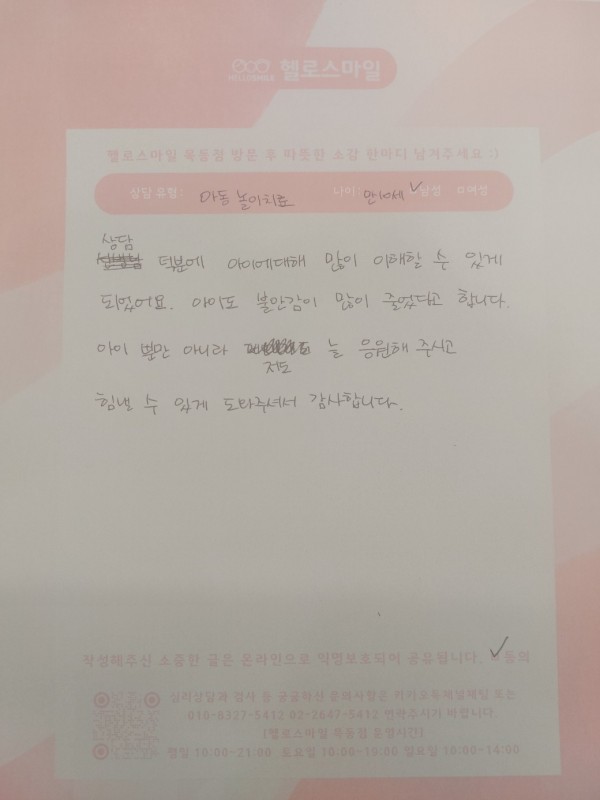 헬로스마일
HELLOSMILE
헬로스마일 목동점 방문 후 따뜻한 소감 한마디 남겨주세요 :)
상담 유형 : 아동 놀이치료 나이 : 만10세 ✓남성 □여성
상담
덕분에 아이에대해 많이 이해할 수 있게
되었어요. 아이도 불안감이 많이 줄었다고 합니다.
아이 뿐만 아니라 늘 응원해 주시고
저도
힘낼 수 있게 도와주셔서 감사합니다.
작성해주신 소중한 글은 온라인으로 익명보호되어 공유됩니다. ✓동의
심리상담과 검사 등 궁금하신 문의사항은 카카오톡채널채팅 또는
010-8327-5412 02-2647-5412 연락주시기 바랍니다
[헬로스마일 목동점 운영시간]
평일 10:00~21:00 토요일 10:00~19:00 일요일 10:00~14:00